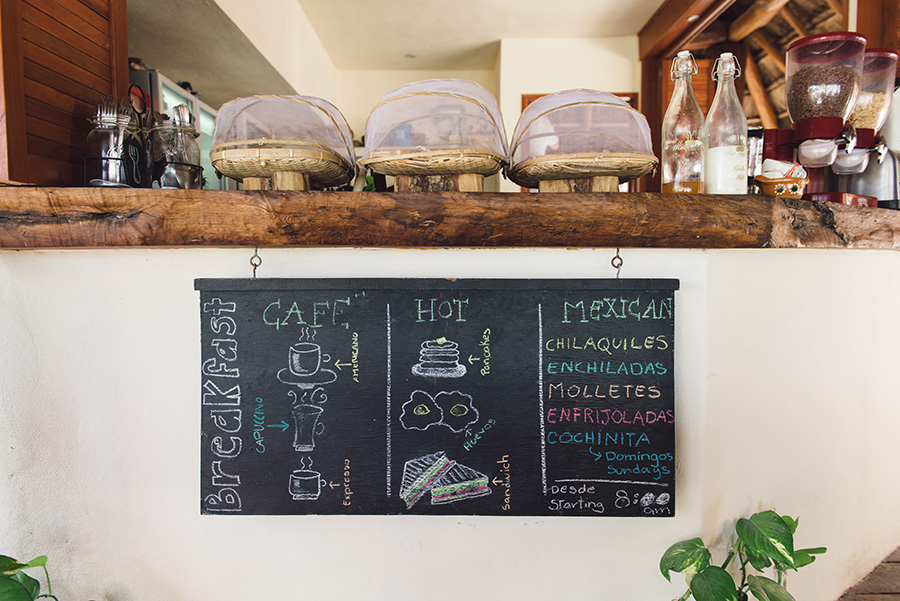 Breakfast
CAFE
AMERICANO
CAPUCCINO
Expresso
HOT
Pancakes
Huevos
Sandwich
MEXICAN
CHILAQUILES
ENCHILADAS
MOLLETES
ENFRIJOLADAS
COCHINITA
Domingos
Sundays
Desde
Starting
8:00
am